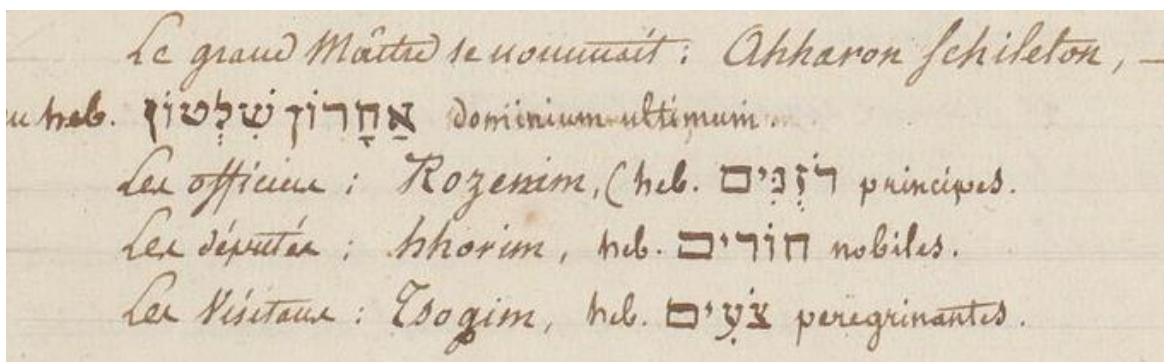 Le grand Maître se nommait : Ahharon Schileton, –
heb. אַחָרוֹן שִׁלְטוֹן dominium ultimum.
Les officiers : Rozenim, (heb. רֹזְנִים principes.
Les députés : hhorim, heb. חוֹרִים nobiles.
Les Visitaurs : Tsogim, heb. צֹעִים peregrinantes.